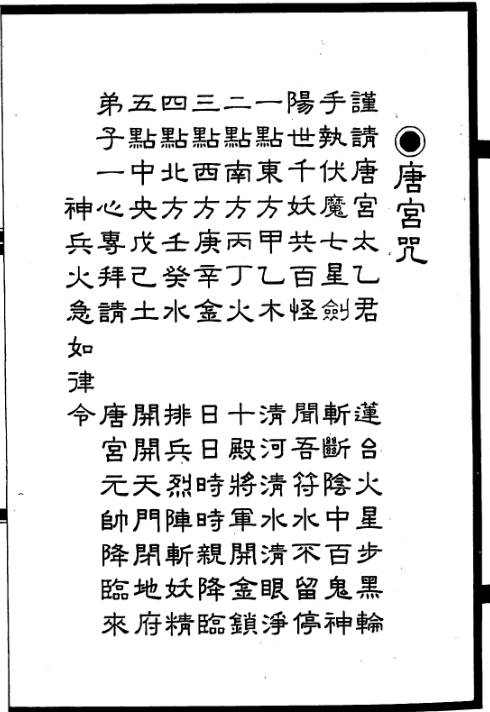 ◉唐宮咒
謹請唐宮太乙君 蓮台火星步黑輪
手執伏魔七星劍 斬斷陰中百鬼神
陽世千妖共百怪 聞吾符水不留停
一點東方甲乙木 清河清水清眼淨
二點南方丙丁火 十殿將軍開金鎖
三點西方庚辛金 日日時時親降臨
四點北方壬癸水 排兵烈陣斬妖精
五點中央戊己土 開開天門閉地府
弟子一心專拜請 唐宮元帥降臨來
神兵火急如律令